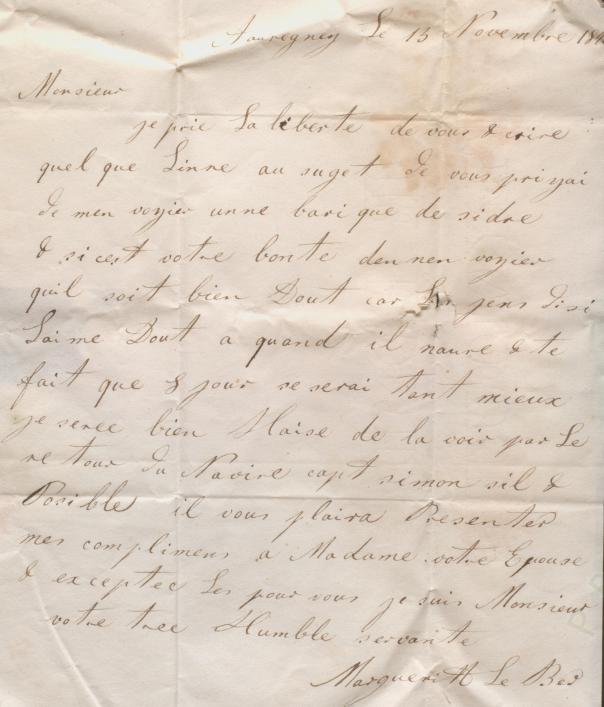 Auregney Le 15 Novembre 184
Monsieur
je prie La liberte de vous & crire
quel que Linne au suget de vous priyai
de men voyier unne barique de sidre
& si cest votre bonte den nen voyier
quil soit bien Dout car Les jens disi
Laime Dout a quand il naure & te
fait que 8 jour se serai tant mieux
je seree bien Haise de la voir par Le
re tour du Navire capt simon sil &
Posible il vous plaira Presenter
mes complimens a Madame votre Epouse
& exceptee Les pour vous je suis Monsieur
votre tree Humble servante
Margueritt Le Ber